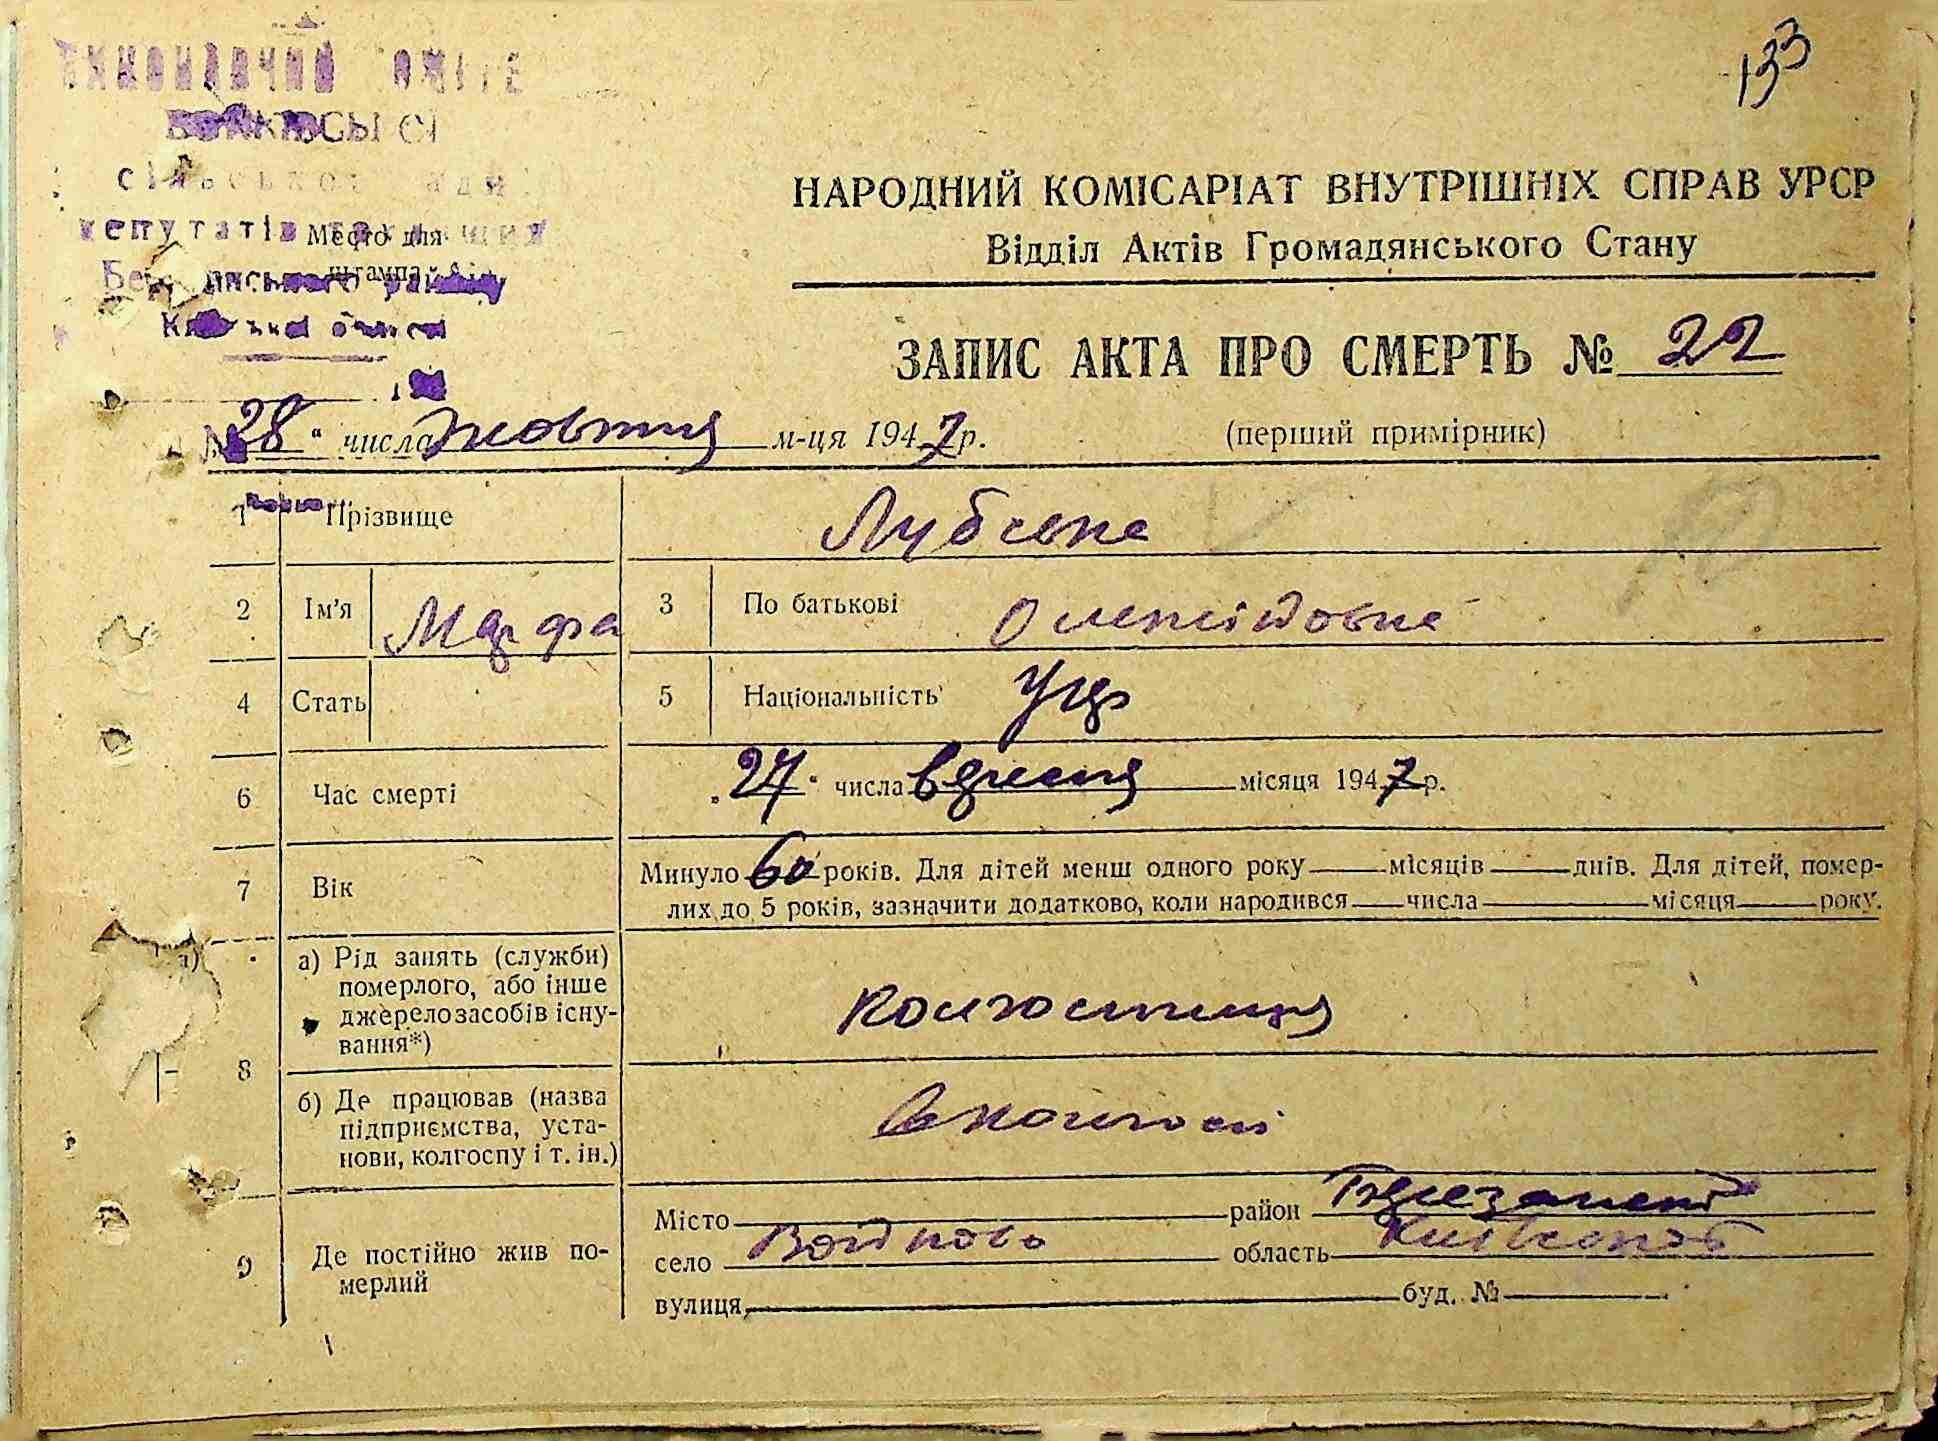 133
сільської ради
депутатів трудящих
Место для
штампа
НАРОДНИЙ КОМІСАРІАТ ВНУТРІШНІХ СПРАВ УРСР
Відділ Актів Громадянського Стану
ЗАПИС АКТА ПРО СМЕРТЬ № 22
28 " числа жовтня м-ця 1947 р.
(перший примірник)
1 Прізвище
2 Ім'я Марфа 3 По батькові
4 Стать 5 Національність Укр
6 Час смерті „27" числа вересня місяця 1947 р.
7 Вік Минуло 60 років. Для дітей менш одного року — місяців — днів. Для дітей, помер-
лих до 5 років, зазначити додатково, коли народився — числа — місяця — року.
8 а) Рід занять (служби)
померлого, або інше
джерело засобів існу-
вання*)
колгоспниця
б) Де працював (назва
підприємства, уста-
нови, колгоспу і т. ін.)
в колгоспі
9 Де постійно жив по-
мерлий
Місто район
село Войково область
вулиця буд. №